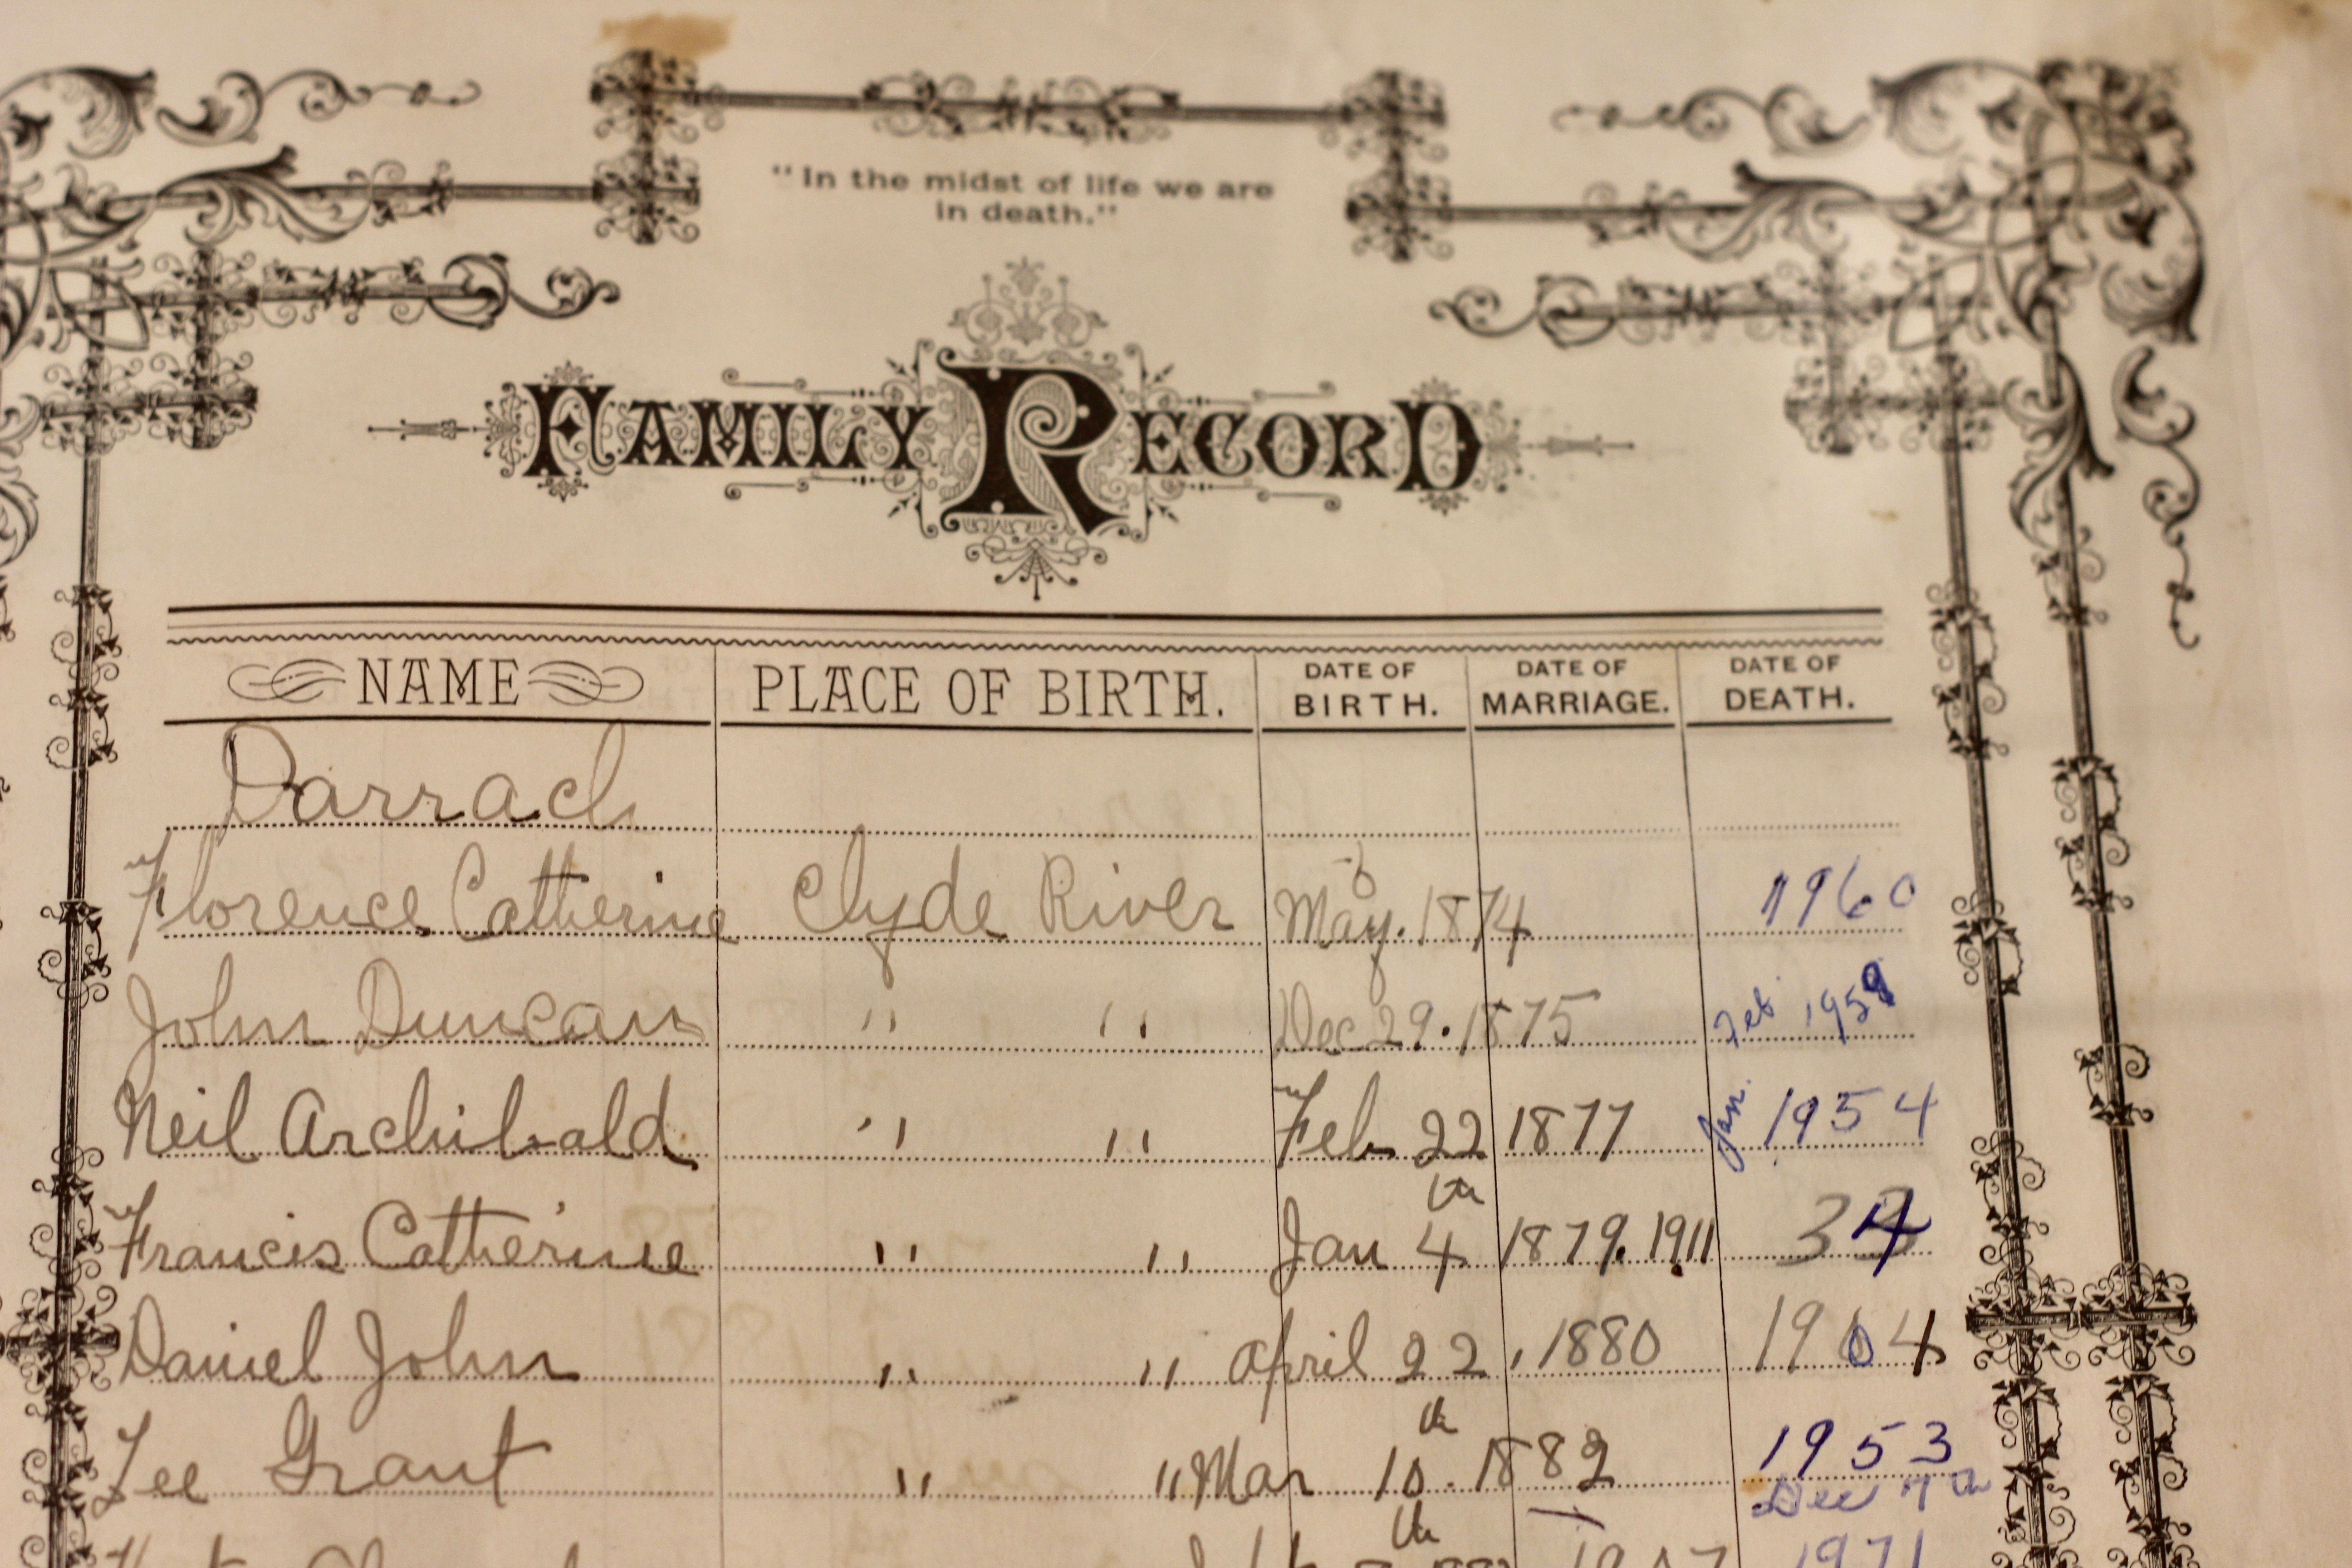 "In the midst of life we are
in death."
FAMILY RECORD
NAME PLACE OF BIRTH. DATE OF BIRTH. DATE OF MARRIAGE. DATE OF DEATH.
Darrach
Florence Catherine Clyde River May. 1874 1960
John Duncan " " Dec 29. 1875 Feb 1959
Neil Archibald " " Feb 22 1877 Jan. 1954
Francis Catherine " " Jan 4th 1879. 1911 34
Daniel John " " April 22, 1880 1964
Lee Grant " " Mar 10th. 1882 1953
Dec 7th
1971